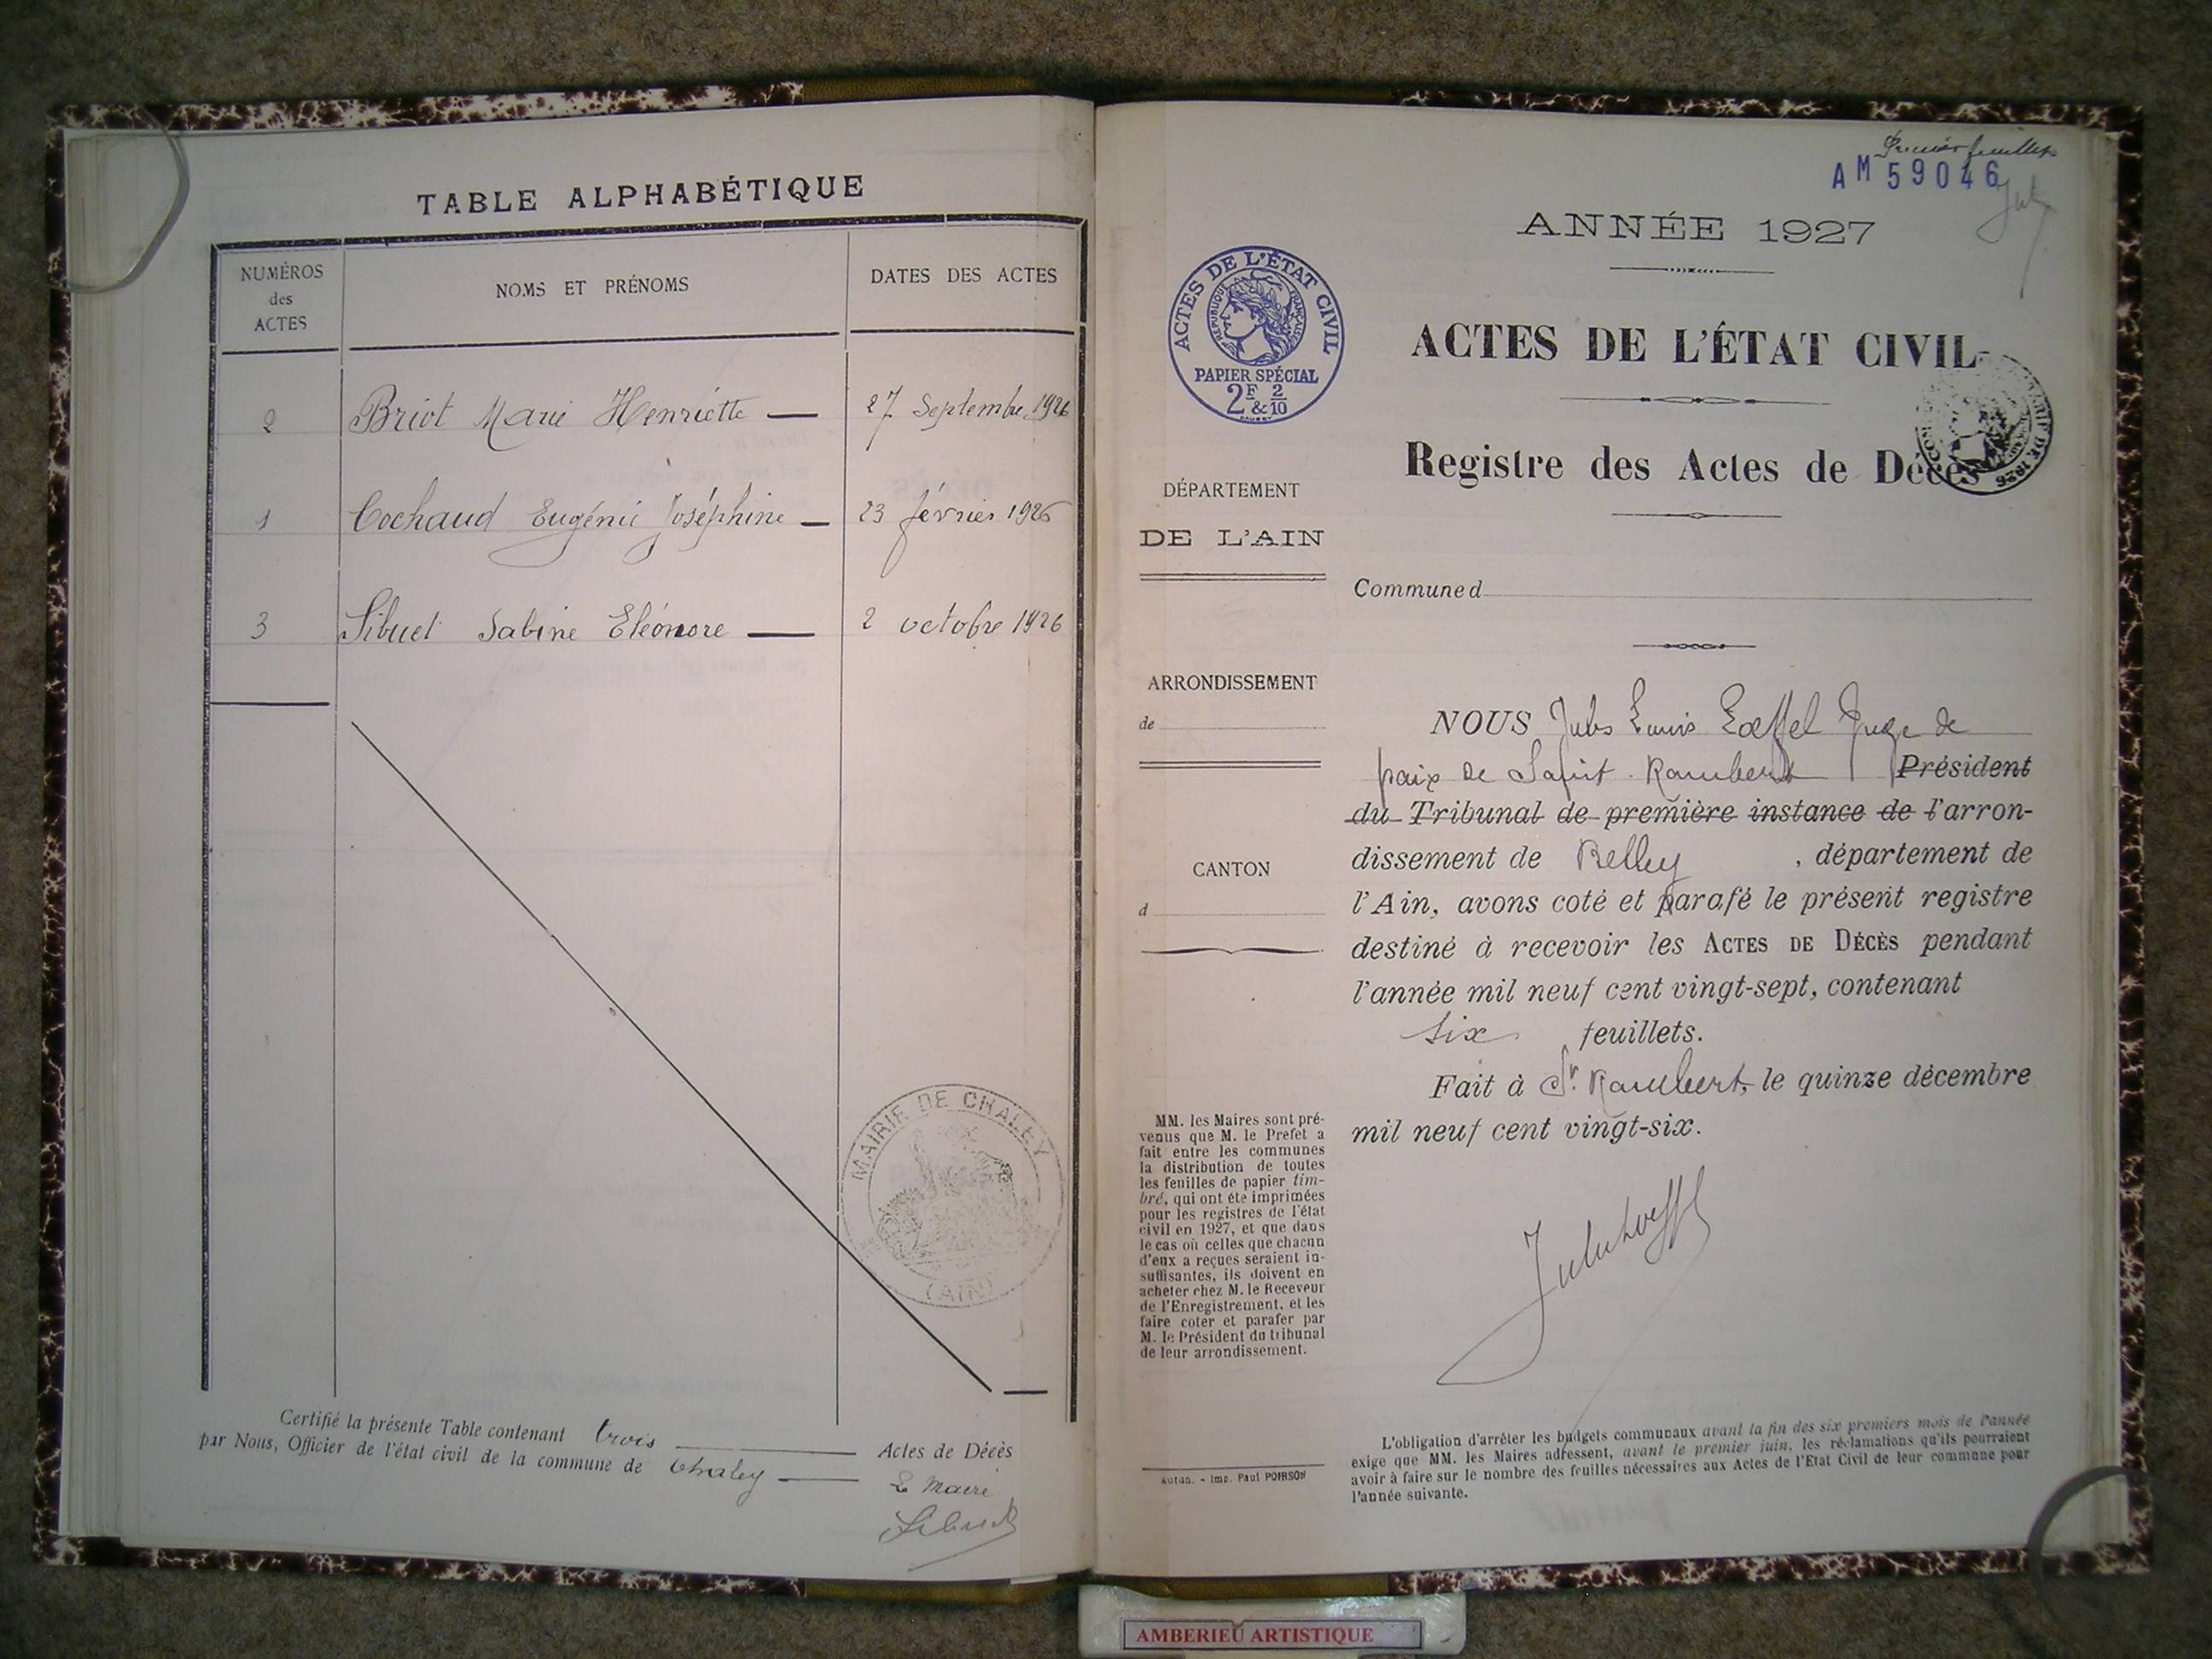 TABLE ALPHABÉTIQUE
NUMÉROS
des
ACTES
NOMS ET PRÉNOMS
DATES DES ACTES
2 Briot Marie Henriette — 27 Septembre 1926
1 Cochaud Eugénie Joséphine — 23 février 1926
3 Sibuet Sabine Eléonore — 2 octobre 1926
MAIRIE DE CHALEY
(AIN)
Certifié la présente Table contenant trois Actes de Décès
par Nous, Officier de l'état civil de la commune de Chaley
Le Maire
Sibuet
Premier feuillet
AM 59046
ANNÉE 1927
ACTES DE L'ÉTAT CIVIL
RÉPUBLIQUE FRANÇAISE
PAPIER SPÉCIAL
2F & 2/10
ACTES DE L'ÉTAT CIVIL
Registre des Actes de Décès
DÉPARTEMENT
DE L'AIN
Commune d
ARRONDISSEMENT
de
CANTON
d
NOUS Jules Louis Loeffel Juge de
paix de Saint Rambert Président
du Tribunal de première instance de l'arron-
dissement de Belley , département de
l'Ain, avons coté et parafé le présent registre
destiné à recevoir les ACTES DE DÉCÈS pendant
l'année mil neuf cent vingt-sept, contenant
six feuillets.
Fait à St. Rambert, le quinze décembre
mil neuf cent vingt-six.
MM. les Maires sont pré-
venus que M. le Préfet a
fait entre les communes
la distribution de toutes
les feuilles de papier tim-
bré, qui ont été imprimées
pour les registres de l'état
civil en 1927, et que dans
le cas où celles que chacun
d'eux a reçues seraient in-
suffisantes, ils doivent en
acheter chez M. le Receveur
de l'Enregistrement, et les
faire coter et parafer par
M. le Président du tribunal
de leur arrondissement.
Autun. - Imp. Paul POIRSON
L'obligation d'arrêter les budgets communaux avant la fin des six premiers mois de l'année
exige que MM. les Maires adressent, avant le premier juin, les réclamations qu'ils pourraient
avoir à faire sur le nombre des feuilles nécessaires aux Actes de l'Etat Civil de leur commune pour
l'année suivante.
AMBERIEU ARTISTIQUE